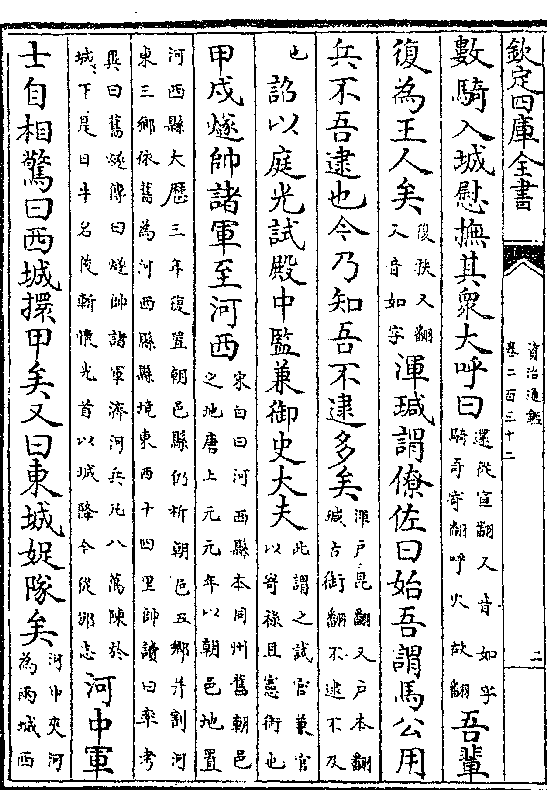 欽定四庫全書
資治通鑑
卷二百三十二
二
數騎入城慰撫其衆大呼曰還從宣翻又音如字騎奇寄翻呼火故翻吾輩
復為王人矣復扶又翻又音如字渾瑊謂僚佐曰始吾謂馬公用
兵不吾逮也今乃知吾不逮多矣渾戶昆翻又戶本翻瑊古銜翻不逮不及
也詔以庭光試殿中監兼御史大夫此謂之試官兼官以寄祿且憲銜也
甲戌燧帥諸軍至河西宋白曰河西縣本同州舊朝邑之地唐上元元年以朝邑地置
河西縣大歷三年復置朝邑縣仍析朝邑五鄉并割河東三鄉依舊為河西縣縣境東西十四里帥讀曰率考
異曰舊燧傳曰燧帥諸軍濟河兵凡八萬陳於城下是日牛名俊斬懷光首以城降今從邠志河中軍
士自相驚曰西城擐甲矣又曰東城娖隊矣河中夾河為兩城西